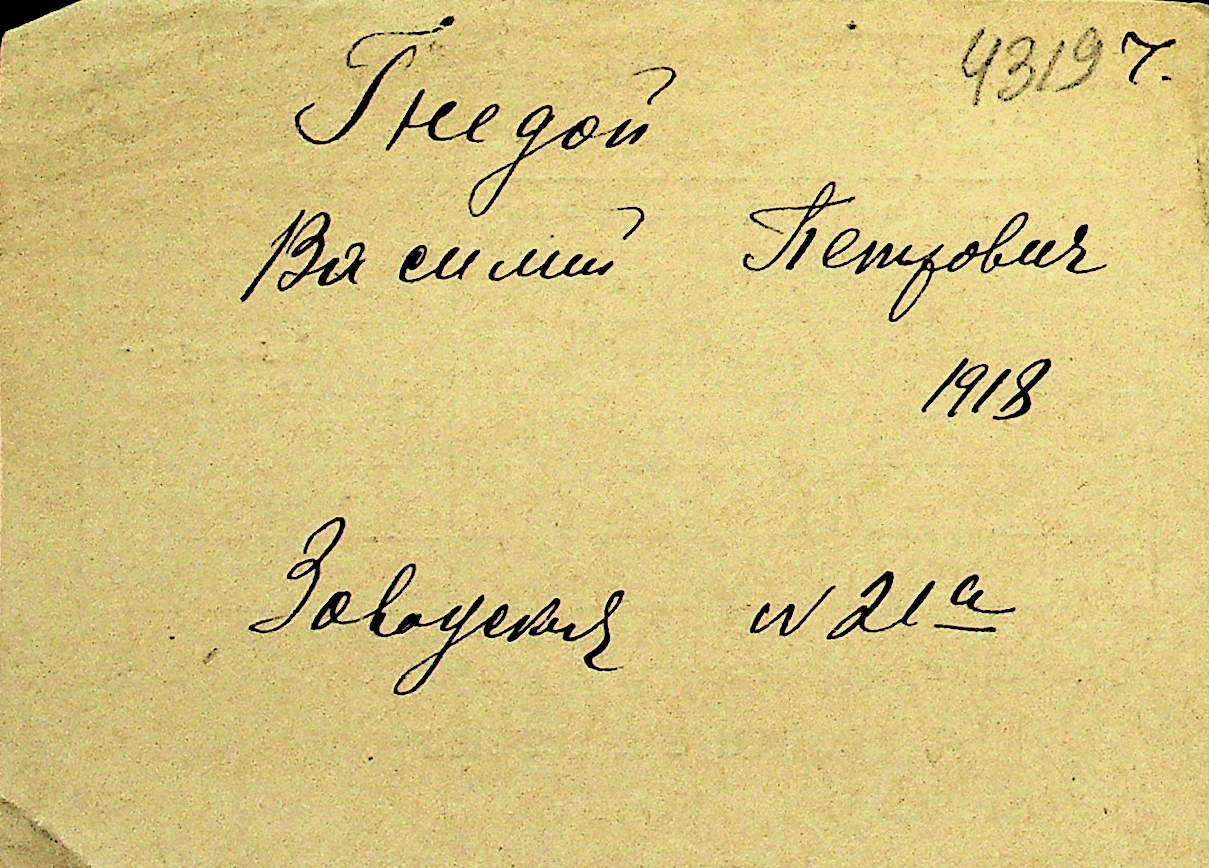 43197.
Гнедой
Василий Петрович
1918
Заводская № 21а